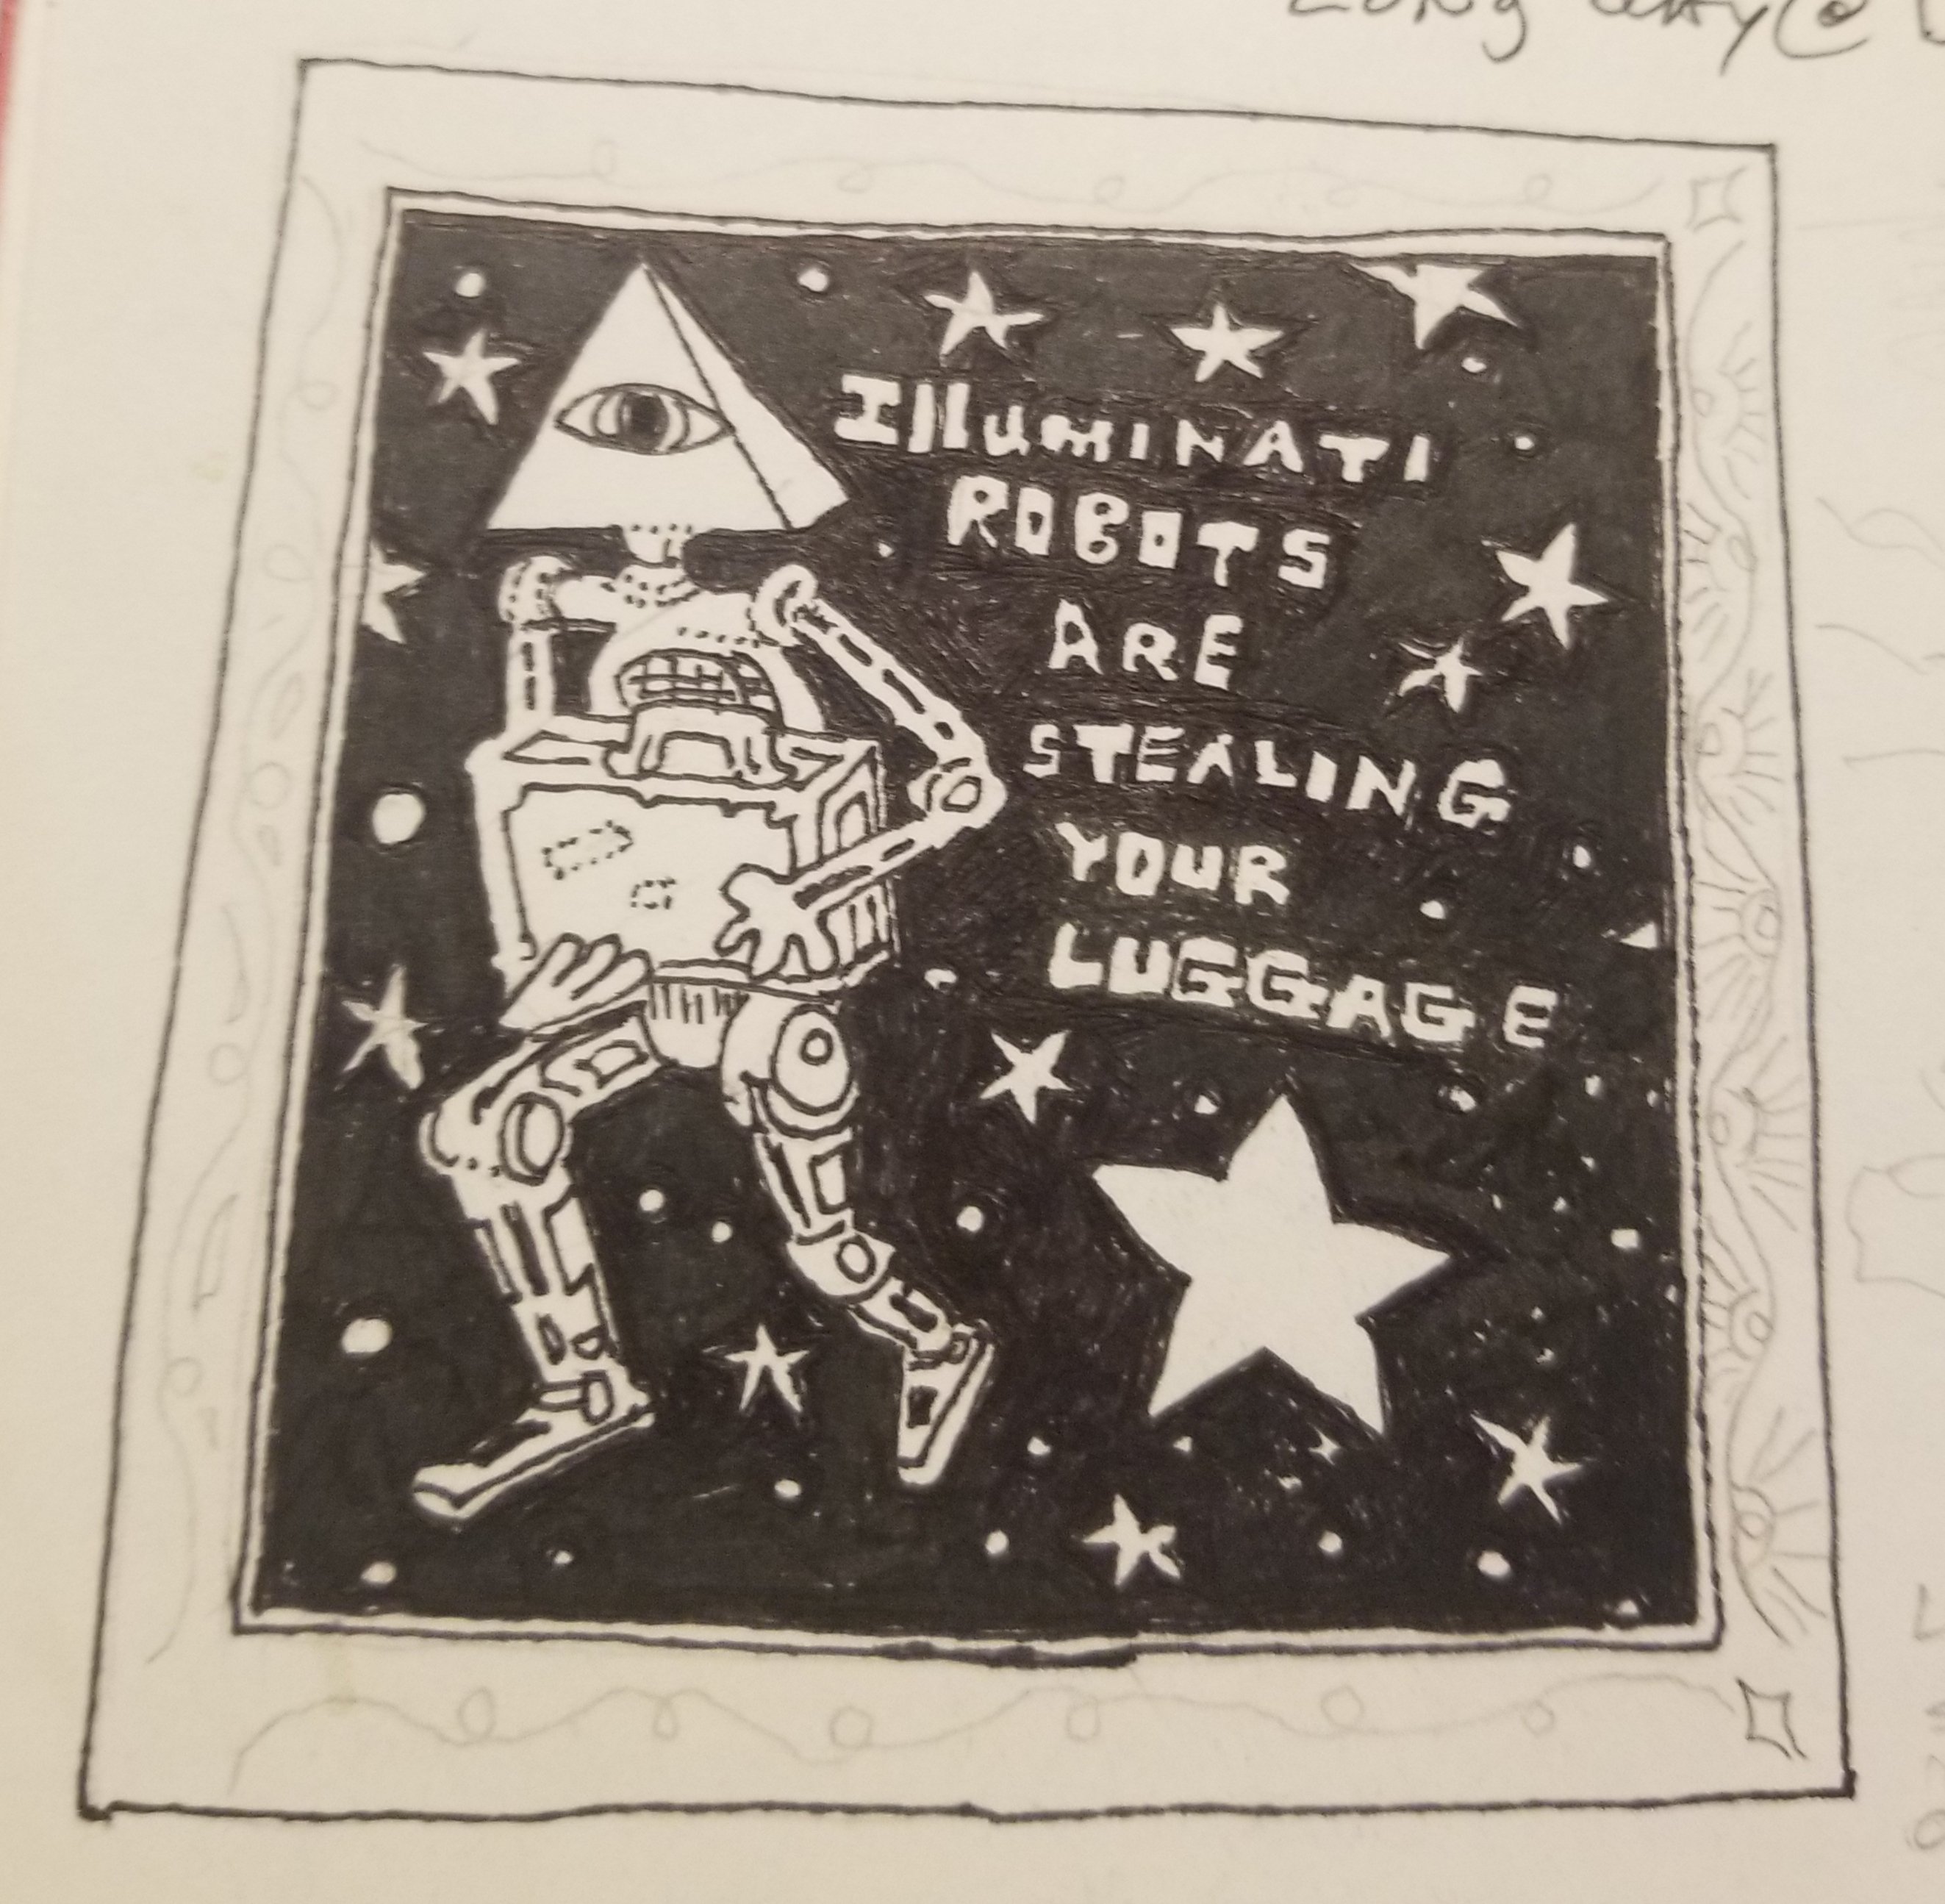 Illuminati
ROBOTS
ARE
STEALING
YOUR
LUGGAGE